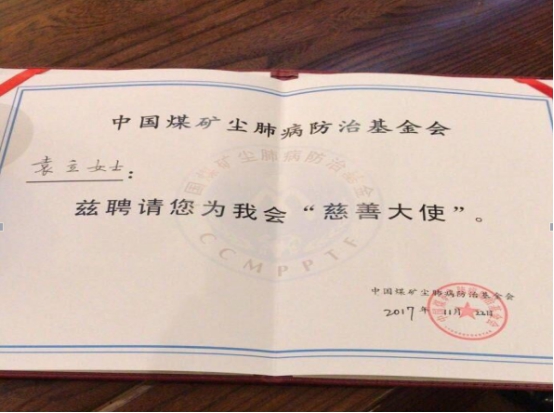 中国煤矿尘肺病防治基金会
袁立女士：
兹聘请您为我会“慈善大使”。
中国煤矿尘肺病防治基金会
CCMPPTF
中国煤矿尘肺病防治基金会
2017年11月22日